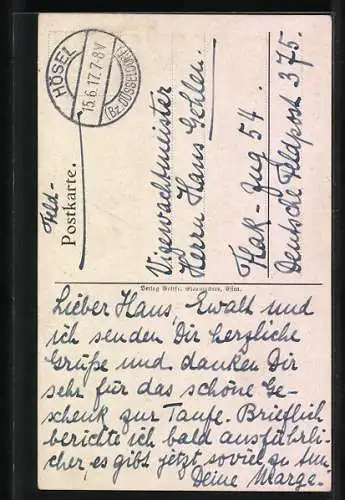 HÖSEL
15.6.17.7-8V
(Bz. DÜSSELDORF)
Feld-
Postkarte.
Vizewachtmeister
Herrn Hans Gehlen.
Flak-Zug 54.
Deutsche Feldpost 375.
Verlag Gebr. Essen.
Lieber Hans, Ewalt und
ich senden Dir herzliche
Grüße und danken Dir
sehr für das schöne Ge-
schenk zur Taufe. Brieflich
berichte ich bald ausführli-
cher, es gibt jetzt soviel zu tun.
Deine Marga.